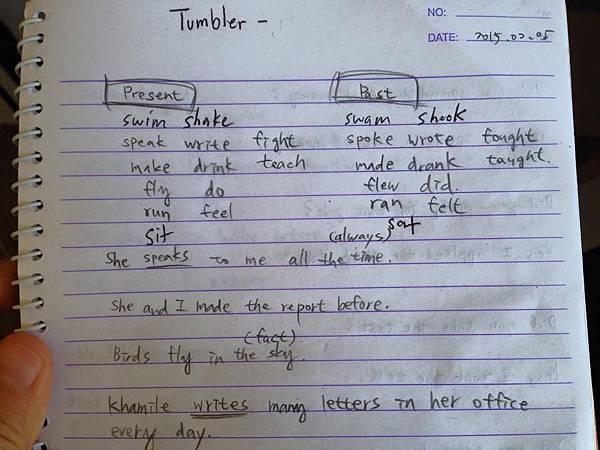 Tumbler -
NO:
DATE: 2015.02.05
Present Past
swim shake swam shook
speak write fight spoke wrote fought
make drink teach made drank taught.
fly do flew did.
run feel ran felt
sit (always) sat
She speaks to me all the time.
She and I made the report before.
(fact)
Birds fly in the sky.
Khamile writes many letters in her office
every day.